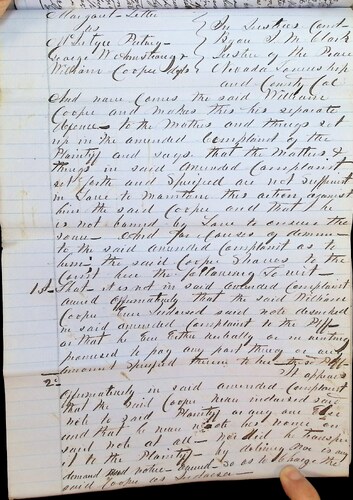 Margaret Letter
vs
George W Armstrong &
William Cooper Defts
In Justices Court
Before J. M. Clark
Justice of the Peace
Nevada Township
and County Cal
And now Comes the said William
Cooper and makes this his separate
to the Matters and things set
up in the amended Complaint of the
Plaintiff and says that the Matters &
things in said Amended Complaint
set forth and Specified are not sufficient
in Law to maintain this action against
him the said Cooper and that he
is not bound by Law to answer the
same. And for Causes of demurrer
to the said amended Complaint as to
him the said Cooper Shows to the
Court here the following To wit-
1st- That it is not in said amended Complaint
averred affirmatively that the said William
Cooper Ever Indorsed said note described
in said amended Complaint to the Plff
or that he Ever Either verbally or in writing
promised to pay any part thing or any
amount Specified therein to her the Plff-
2- It appears
affirmatively in said amended Complaint
that the said Cooper never indorsed said
note to said Plaintiff or any one Else
and that he never wrote his name on
said note at all- nor did he transfer
it to the Plaintiff- by delivery nor is any
demand and notice so as to Charge the
said Cooper as Indorser-